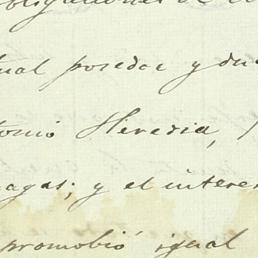 obligaciones de
tual posedor y du
tonio Heredia,
agas; y el intere
promobió igual